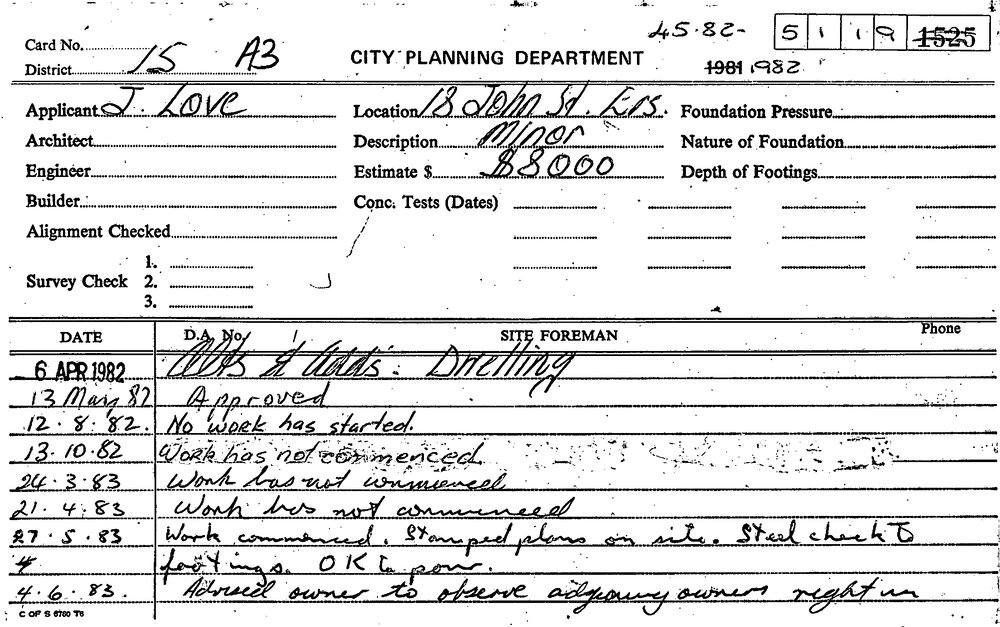 45.82-
5 1 1 9 1525
Card No.
District 15 A3
CITY PLANNING DEPARTMENT
1981 1982
Applicant J. LOVE
Location 18 John St. Ers.
Foundation Pressure
Architect
Description Minor
Nature of Foundation
Engineer
Estimate $ $8000
Depth of Footings
Builder
Conc. Tests (Dates)
Alignment Checked
1.
Survey Check 2.
3.
DATE D.A. No. SITE FOREMAN Phone
6 APR 1982 Alts & Adds. Dwelling
13 May 82 Approved
12.8.82. No work has started.
13.10.82 Work has not commenced
24.3.83 Work has not commenced
21.4.83 Work has not commenced
27.5.83 Work commenced. Stamped plans on site. Steel check to
footings. OK to pour.
4.6.83. Advised owner to observe owners right
C OF S 6780 T6